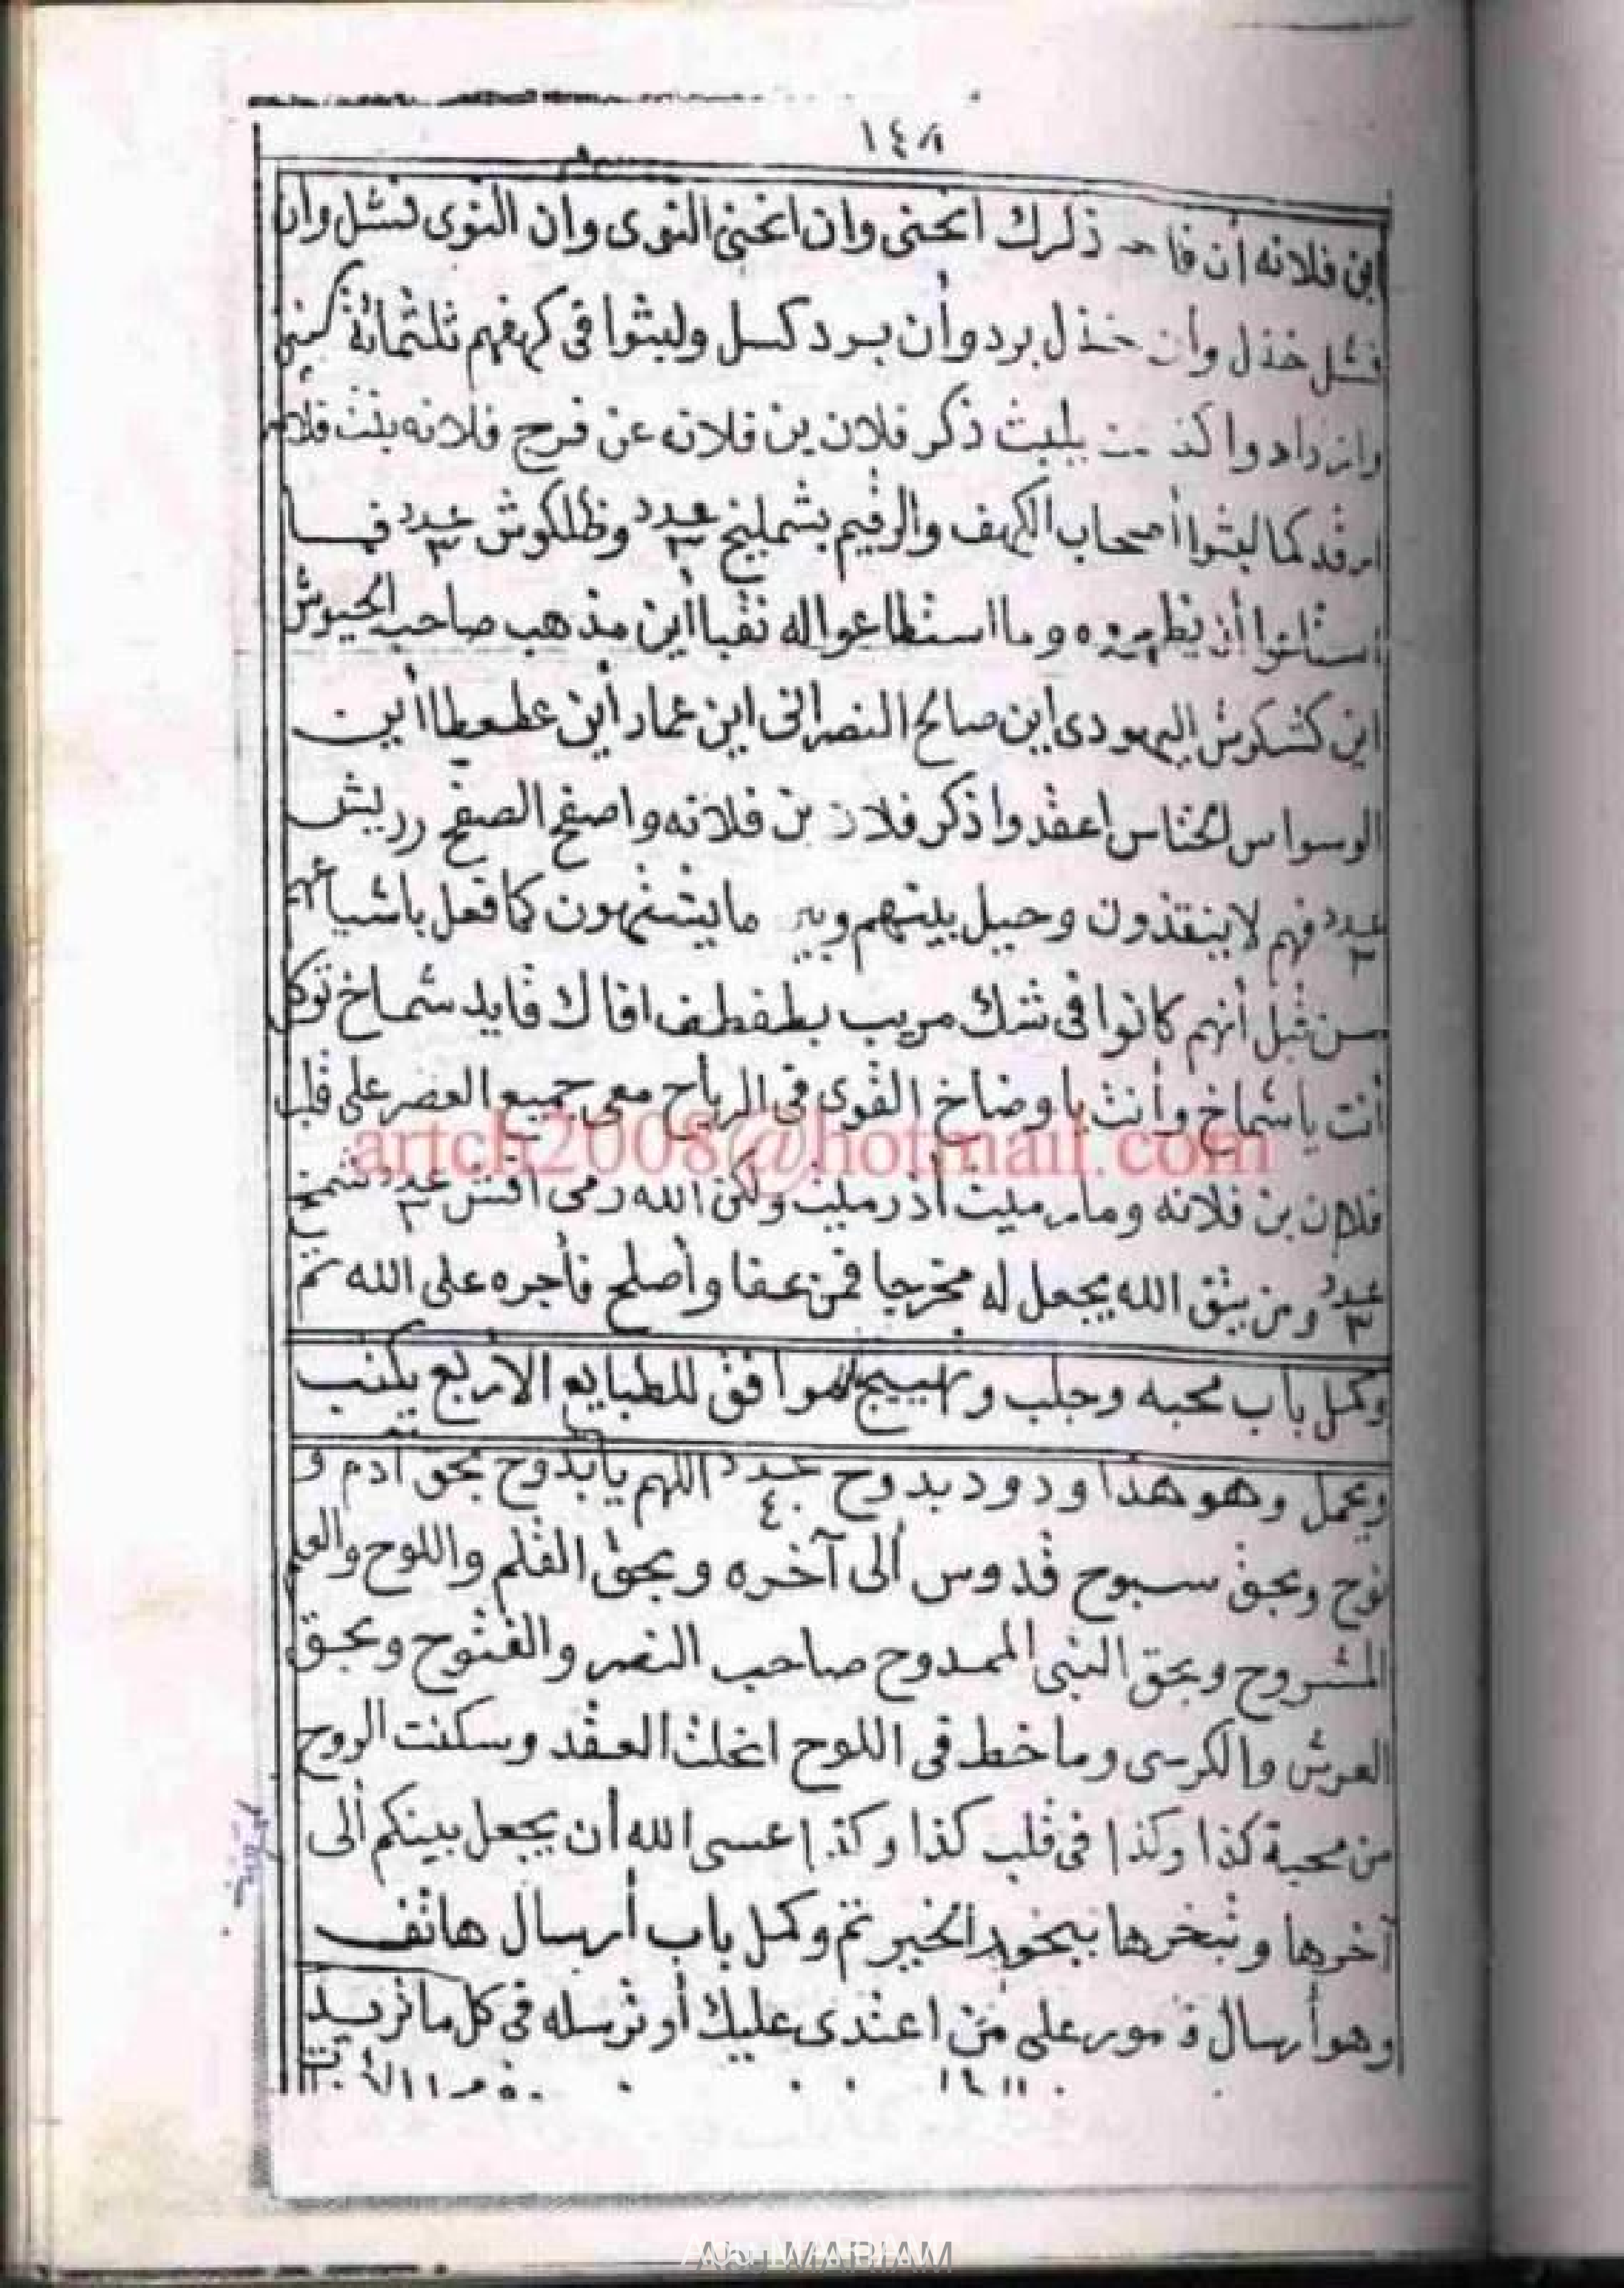 ١٤٨
ابن فلانه أن قا ذلرك انحنى وان انحنى التوى وان التوى فشل وان
فشل خذل وان خذل برد وأن برد كسل ولبثوا فى كهفهم ثلثمائة سنى
وازدادوا يلبث ذكر فلان بن فلانه عن فرج فلانه بنت فلانه
ارقد كما لبثوا أصحاب الكهف والرقيم بشمليخ عدد ٣ وظلكوش عدد ٣ فما
استاعوا أن يظهروه وما استطاعوا له نقبا أين مذهب صاحب الجيوش
اين كشكوش اليهودى اين صالح النصرانى اين عمار أين عطعطا أين
الوسواس الخناس اعقدوا ذكر فلان بن فلانه واصفح الصفح رريش
عدد ٣ فهم لا ينقذون وحيل بينهم وبين ما يشتهون كما فعل باشياعهم
من قبل أنهم كانوا فى شك مريب بطفطف افاك قايد شماخ توكل
أنت ياشماخ وأنت ياوضاخ القوى فى الرياح معى جميع العضر على قلب
artch2008@hotmail.com
فلان بن فلانه وما رميت أذ رميت ولكن الله رمى اقش عدد ٣ شمخ
عدد ٣ ومن يتق الله يجعل له مخرجا فمن عفا وأصلح فأجره على الله تم
وكمل باب محبه وجلب وتهييج موافق للطبايع الأربع يكتب
ويحمل وهو هذا ودود بدوح عدد ٤ اللهم يابدوح بحق ادم و
نوح وبحق سبوح قدوس ألى آخره وبحق القلم واللوح والعلم
المشروح وبحق النبى الممدوح صاحب النصر والفتوح وبحق
العرش والكرسى وما خط فى اللوح انحلت العقد وسكنت الروح
من محبة كذا وكذا فى قلب كذا وكذا عسى الله أن يجعل بينكم ألى
آخرها وتبخرها ببخور الخير تم وكمل باب أرسال هاتف
وهو أرسال على من اعتدى عليك أو ترسله فى كل ما تريد
Abu MARIAM